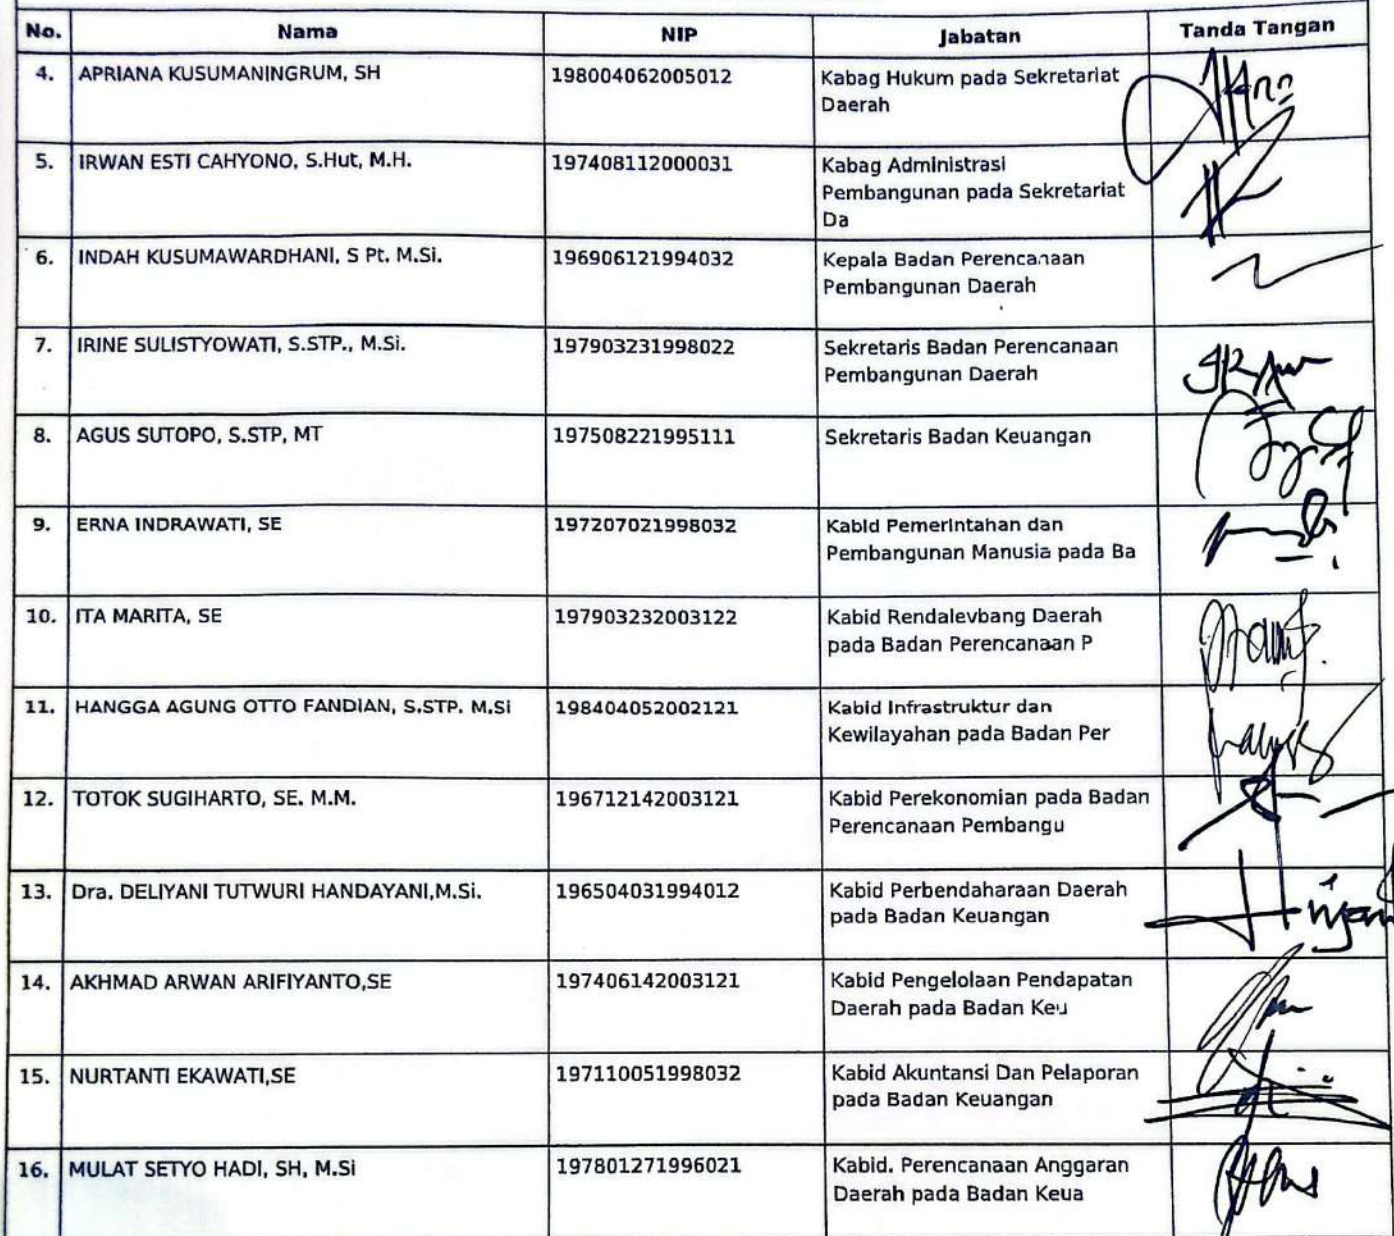 No. Nama NIP Jabatan Tanda Tangan
4. APRIANA KUSUMANINGRUM, SH 198004062005012 Kabag Hukum pada Sekretariat
Daerah
5. IRWAN ESTI CAHYONO, S.Hut, M.H. 197408112000031 Kabag Administrasi
Pembangunan pada Sekretariat
Da
6. INDAH KUSUMAWARDHANI, S Pt. M.Si. 196906121994032 Kepala Badan Perencanaan
Pembangunan Daerah
7. IRINE SULISTYOWATI, S.STP., M.Si. 197903231998022 Sekretaris Badan Perencanaan
Pembangunan Daerah
8. AGUS SUTOPO, S.STP, MT 197508221995111 Sekretaris Badan Keuangan
9. ERNA INDRAWATI, SE 197207021998032 Kabid Pemerintahan dan
Pembangunan Manusia pada Ba
10. ITA MARITA, SE 197903232003122 Kabid Rendalevbang Daerah
pada Badan Perencanaan P
11. HANGGA AGUNG OTTO FANDIAN, S.STP. M.Si 198404052002121 Kabid Infrastruktur dan
Kewilayahan pada Badan Per
12. TOTOK SUGIHARTO, SE. M.M. 196712142003121 Kabid Perekonomian pada Badan
Perencanaan Pembangu
13. Dra. DELIYANI TUTWURI HANDAYANI,M.Si. 196504031994012 Kabid Perbendaharaan Daerah
pada Badan Keuangan
14. AKHMAD ARWAN ARIFIYANTO,SE 197406142003121 Kabid Pengelolaan Pendapatan
Daerah pada Badan Keu
15. NURTANTI EKAWATI,SE 197110051998032 Kabid Akuntansi Dan Pelaporan
pada Badan Keuangan
16. MULAT SETYO HADI, SH, M.Si 197801271996021 Kabid. Perencanaan Anggaran
Daerah pada Badan Keua